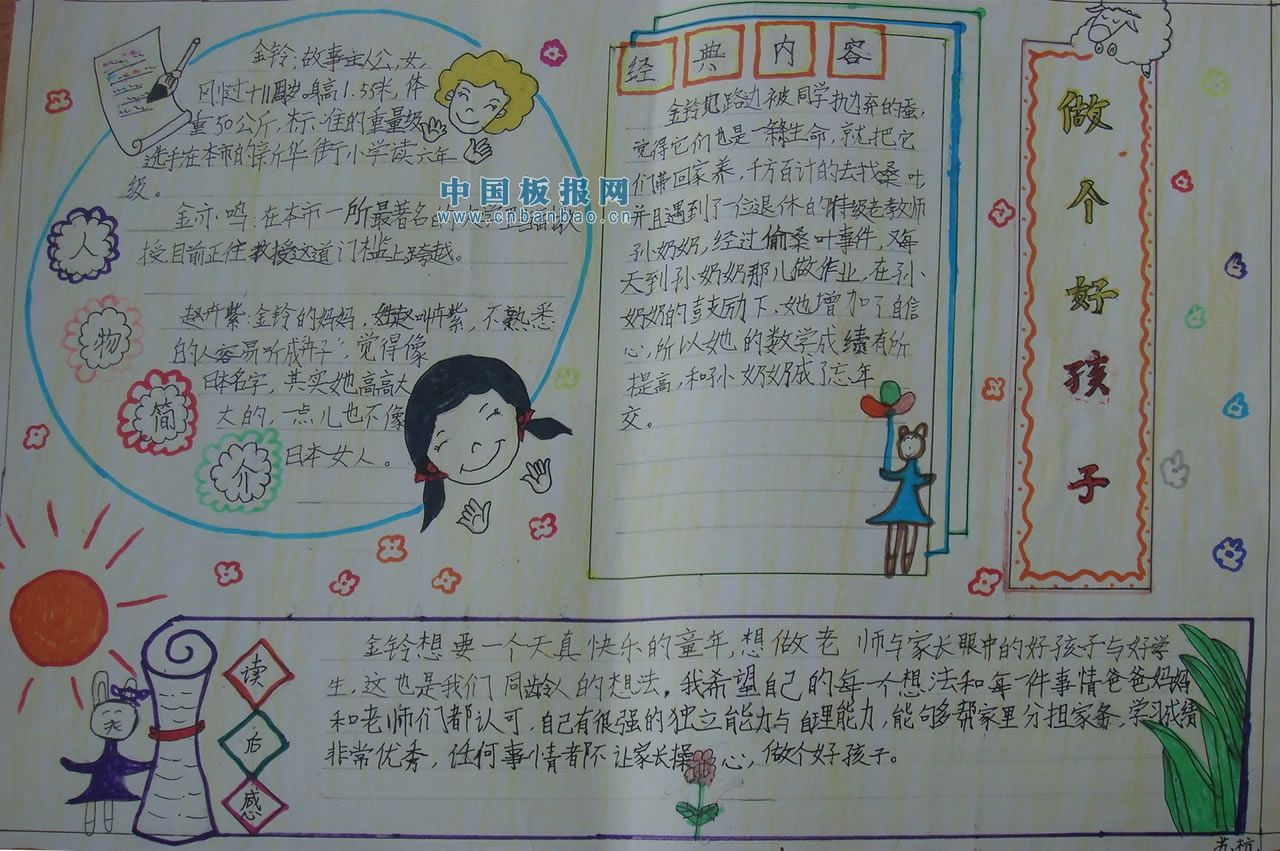 金铃:故事主人公,女,
刚过十11周岁。身高1.55米,体
重50公斤,标准的重量级
选手在本市的新华街小学读六年
级。
金亦鸣:在本市一所最著名的大学
授目前正往教授这道门槛上跨越。
赵卉紫:金铃的妈妈,叫卉紫,不熟悉
的人容易听成卉子",觉得像
日本名字,其实她高高大
大的,一点儿也不像
日本女人。
人
物
简
介
中国板报网
www.cnbanbao.cn
经典内容
金铃把路边被同学扔弃的蚕,
觉得它们也是一条生命,就把它
们带回家养,千方百计的去找桑叶
并且遇到了一位退休的特级老教师
孙奶奶,经过偷桑叶事件,又每
天到孙奶奶那儿做作业,在孙
奶奶的鼓励下,她增加了自信
心,所以她的数学成绩有所
提高,和孙奶奶成了忘年
交。
做
个
好
孩
子
读
后
感
金铃想要一个天真快乐的童年,想做老师与家长眼中的好孩子与好学
生,这也是我们同龄人的想法。我希望自己的每一个想法和每一件事情爸爸妈妈
和老师们都认可,自己有很强的独立能力与自理能力,能够多帮家里分担家务,学习成绩
非常优秀,任何事情都不让家长操心,做个好孩子。
苏杭